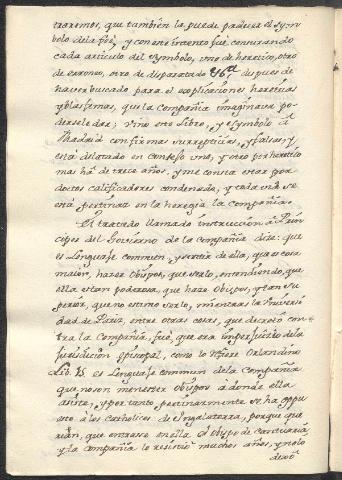 traremos, que tambien la puede padecer el sym-
bolo dela feè, y con este intento fuè censurando
cada articulo del symbolo, uno de heretico, otro
de erroneo, otro de disparatado despues de
haver buscado para el explicaciones hereticas
y blasfemas, que la Compañia imaginava po-
derseledar; vino este libro, y el symbolo à
Madrid con firmas surrepticias, y falsas, y
està delatado en Consejo una, y otro por heretico
mas hà de trece años, y me consta estar por
doctos calificadores condenado, y cada una se
està pertinaz en la heregia la Compañia.
El tratado llamado instruccion à Prin-
cipes del Govierno de la Compañia dice: que
es Lenguaje commun, y sentir de ella, que es cosa
maior, hacer Obispos, que serlo, entendiendo, que
ella es tan poderosa, que hace Obispos, y tan su
perior, que no estima serlo, mientras la Universi-
dad de Pariz, entre otras cosas, que decretò con-
tra la Compañia, fuè, que era imperjuicio dela
jurisdicion Episcopal, como lo refiere Orlandino
Lib. 15. es Lenguaje commun dela Compañia
que no son menester Obispos à donde ella
asiste, y por tanto pertinazmente se ha oppu
esto à los Catholicos de Ingalaterra, porque que
rian, que entrasse en ella el Obispo de Cantuaria
y la Compañia lo resistiò muchos años, y no lo
dexò